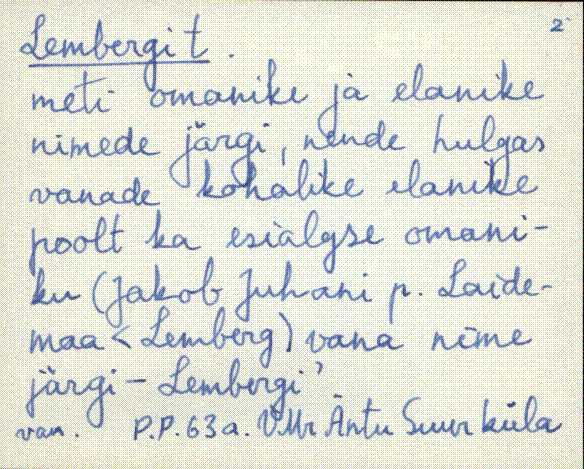 2
Lembergi t.
meti omanike ja elanike
nimede järgi, nende hulgas
vanade kohalike elanike
poolt ka esialgse omani-
ku (Jakob Juhani p. Laide-
maa < Lemberg) vana nime
järgi - Lembergi'
van. P.P. 63 a. VMr Äntu Suurküla